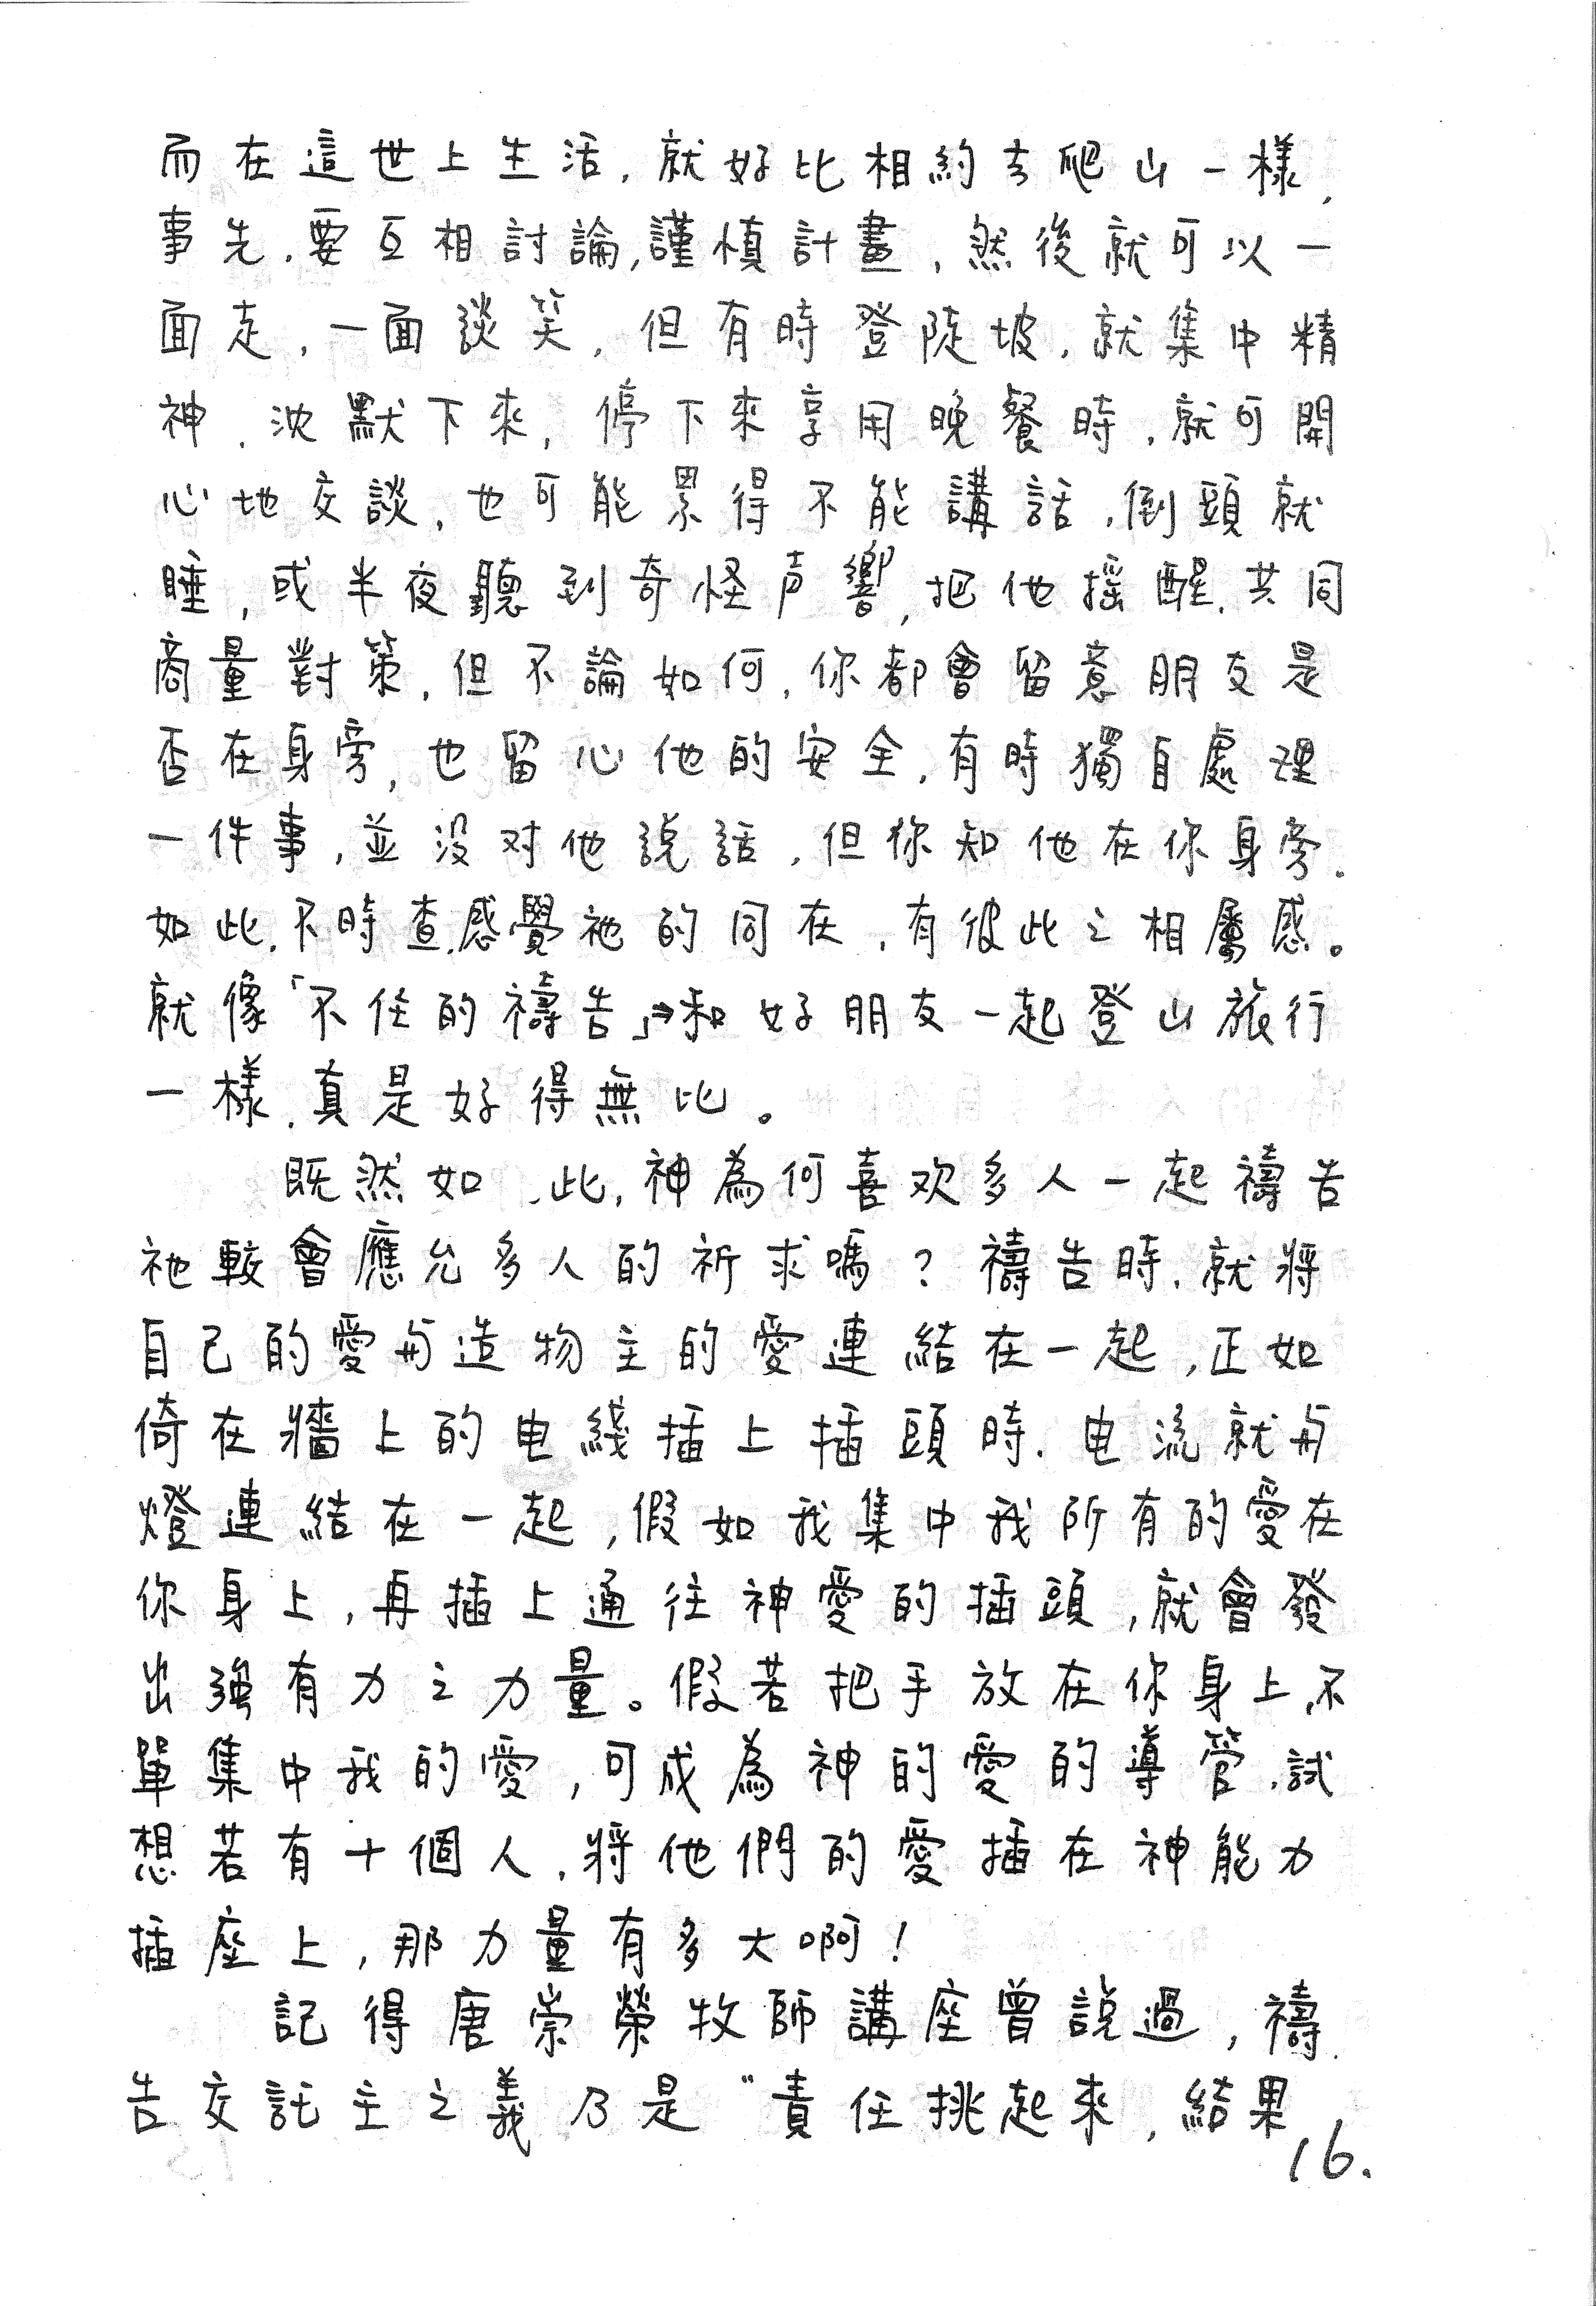 而在這世上生活，就好比相約去爬山一樣，
事先，要互相討論，謹慎計畫，然後就可以一
面走，一面談笑，但有時登陡坡，就集中精
神，沈默下來，停下來享用晚餐時，就可開
心地交談，也可能累得不能講話，倒頭就
睡，或半夜聽到奇怪声響，把他搖醒，共同
商量對策，但不論如何，你都會留意朋友是
否在身旁，也留心他的安全，有時獨自處理
一件事，並沒对他說話，但你知他在你身旁．
如此，不時查，感覺祂的同在，有彼此之相屬感。
就像「不住的禱告」⇒和好朋友一起登山旅行
一樣，真是好得無比。
既然如此，神為何喜欢多人一起禱告
祂較會應允多人的祈求嗎？禱告時，就將
自己的愛与造物主的愛連結在一起，正如
倚在牆上的电綫插上插頭時，电流就与
燈連結在一起，假如我集中我所有的愛在
你身上，再插上通往神愛的插頭，就會發
出強有力之力量。假若把手放在你身上，不
單集中我的愛，可成為神的愛的導管，試
想若有十個人，將他們的愛插在神能力
插座上，那力量有多大啊！
記得唐崇榮牧師講座曾說過，禱
告交託主之義乃是“責任挑起來，結果
16.